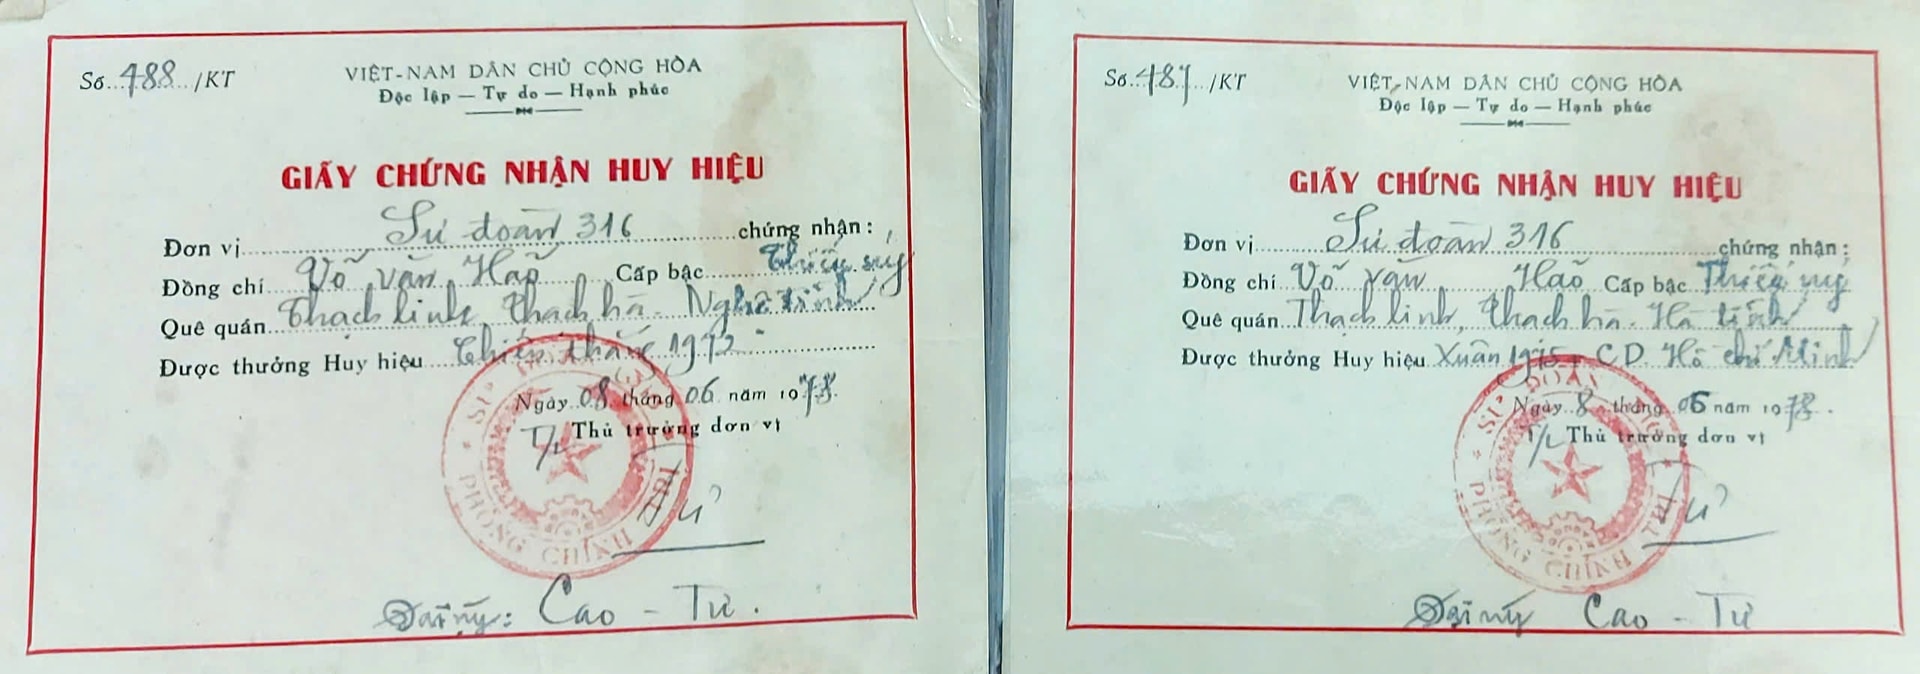 Số 488 /KT
VIỆT-NAM DÂN CHỦ CỘNG HÒA
Độc lập — Tự do — Hạnh phúc
GIẤY CHỨNG NHẬN HUY HIỆU
Đơn vị Sư đoàn 316 chứng nhận:
Đồng chí Võ văn Haõ Cấp bậc Thiếu úy
Quê quán Thạch linh, thạch hà. Nghệ tĩnh
Được thưởng Huy hiệu Chiến thắng 1972
Ngày 08 tháng 06 năm 1978
T/L Thủ trưởng đơn vị
SƯ
PHÒNG CHÍNH TRỊ
Tư
Đại úy: Cao - Tư.
Số 487 /KT
VIỆT-NAM DÂN CHỦ CỘNG HÒA
Độc lập — Tự do — Hạnh phúc
GIẤY CHỨNG NHẬN HUY HIỆU
Đơn vị Sư đoàn 316 chứng nhận:
Đồng chí Võ văn Haõ Cấp bậc Thiếu úy
Quê quán Thạch linh, thạch hà. Hà tĩnh
Được thưởng Huy hiệu Xuân 1975 C.D. Hồ chí Minh
Ngày 8 tháng 06 năm 1978.
T/L Thủ trưởng đơn vị
SƯ ĐOÀN
PHÒNG CHÍNH TRỊ
Tư
Đại úy Cao - Tư